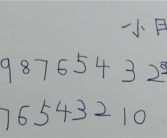 小
987654 3 2
76543210